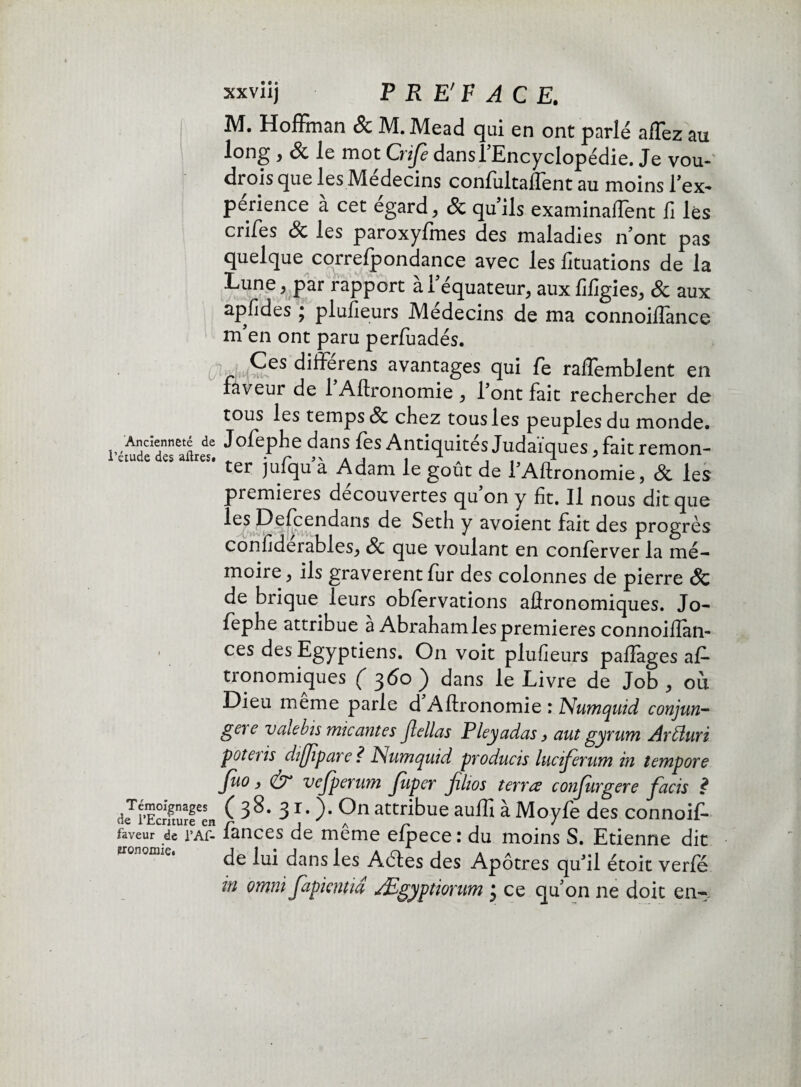 xxviij PRÉFACE.
M. Hoffman & M. Mead qui en ont parlé aſſez au
long, & le mot Criſe dans l'Encyclopédie. Je vou-
drois que les Médecins conſultaſſent au moins l'ex-
périence à cet égard, & qu'ils examinaſſent ſi les
criſes & les paroxyſmes des maladies n'ont pas
quelque correſpondance avec les ſituations de la
Lune, par rapport à l'équateur, aux ſiſigies, & aux
apſides ; pluſieurs Médecins de ma connoiſſance
m'en ont paru perſuadés.
Ces différens avantages qui ſe raſſemblent en
faveur de l'Aſtronomie, l'ont fait rechercher de
tous les temps & chez tous les peuples du monde.
Ancienneté de
l'étude des aſtres.
Joſephe dans ſes Antiquités Judaïques, fait remon-
ter juſqu'à Adam le goût de l'Aſtronomie, & les
premieres découvertes qu'on y fit. Il nous dit que
les Deſcendans de Seth y avoient fait des progrès
conſidérables, & que voulant en conſerver la mé-
moire, ils graverent ſur des colonnes de pierre &
de brique leurs obſervations aſtronomiques. Jo-
ſephe attribue à Abraham les premieres connoiſſan-
ces des Egyptiens. On voit pluſieurs paſſages aſ-
tronomiques ( 360 ) dans le Livre de Job, où
Dieu même parle d'Aſtronomie : Numquid conjun-
gere valebis micantes ſtellas Pleyadas, aut gyrum Arcturi
poteris diſſipare ? Numquid producis luciferum in tempore
ſuo, & veſperum ſuper filios terræ conſurgere facis ?
Témoignages
de l'Ecriture en
faveur de l'Aſ-
tronomie.
( 38. 31. ). On attribue auſſi à Moyſe des connoiſ-
ſances de même eſpece : du moins S. Etienne dit
de lui dans les Actes des Apôtres qu'il étoit verſé
in omni ſapientiâ Ægyptiorum ; ce qu'on ne doit en-